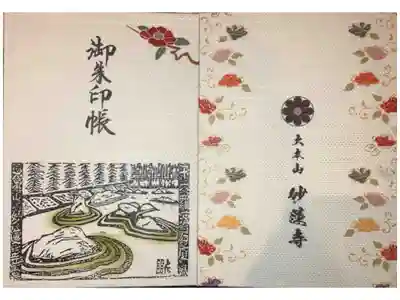 御朱印帳
大本山 妙蓮寺